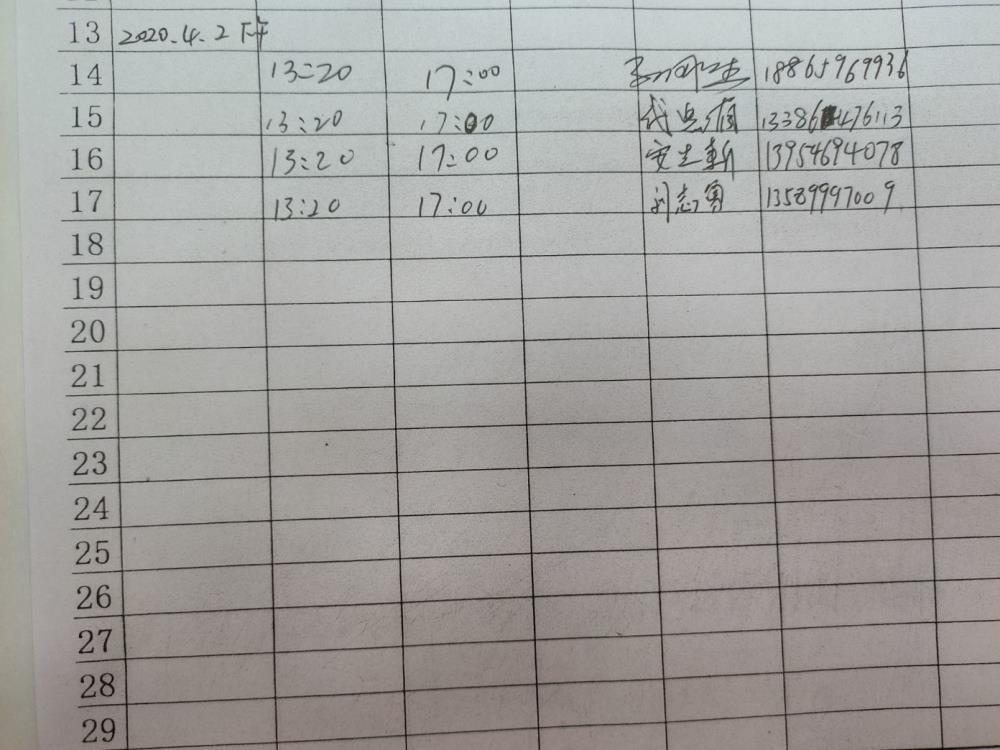 13 2020.4.2 下午
14 13:20 17:00 18865969936
15 13:20 17:00 13386476113
16 13:20 17:00 安志新 13954694078
17 13:20 17:00 刘志勇 13589997009
18
19
20
21
22
23
24
25
26
27
28
29